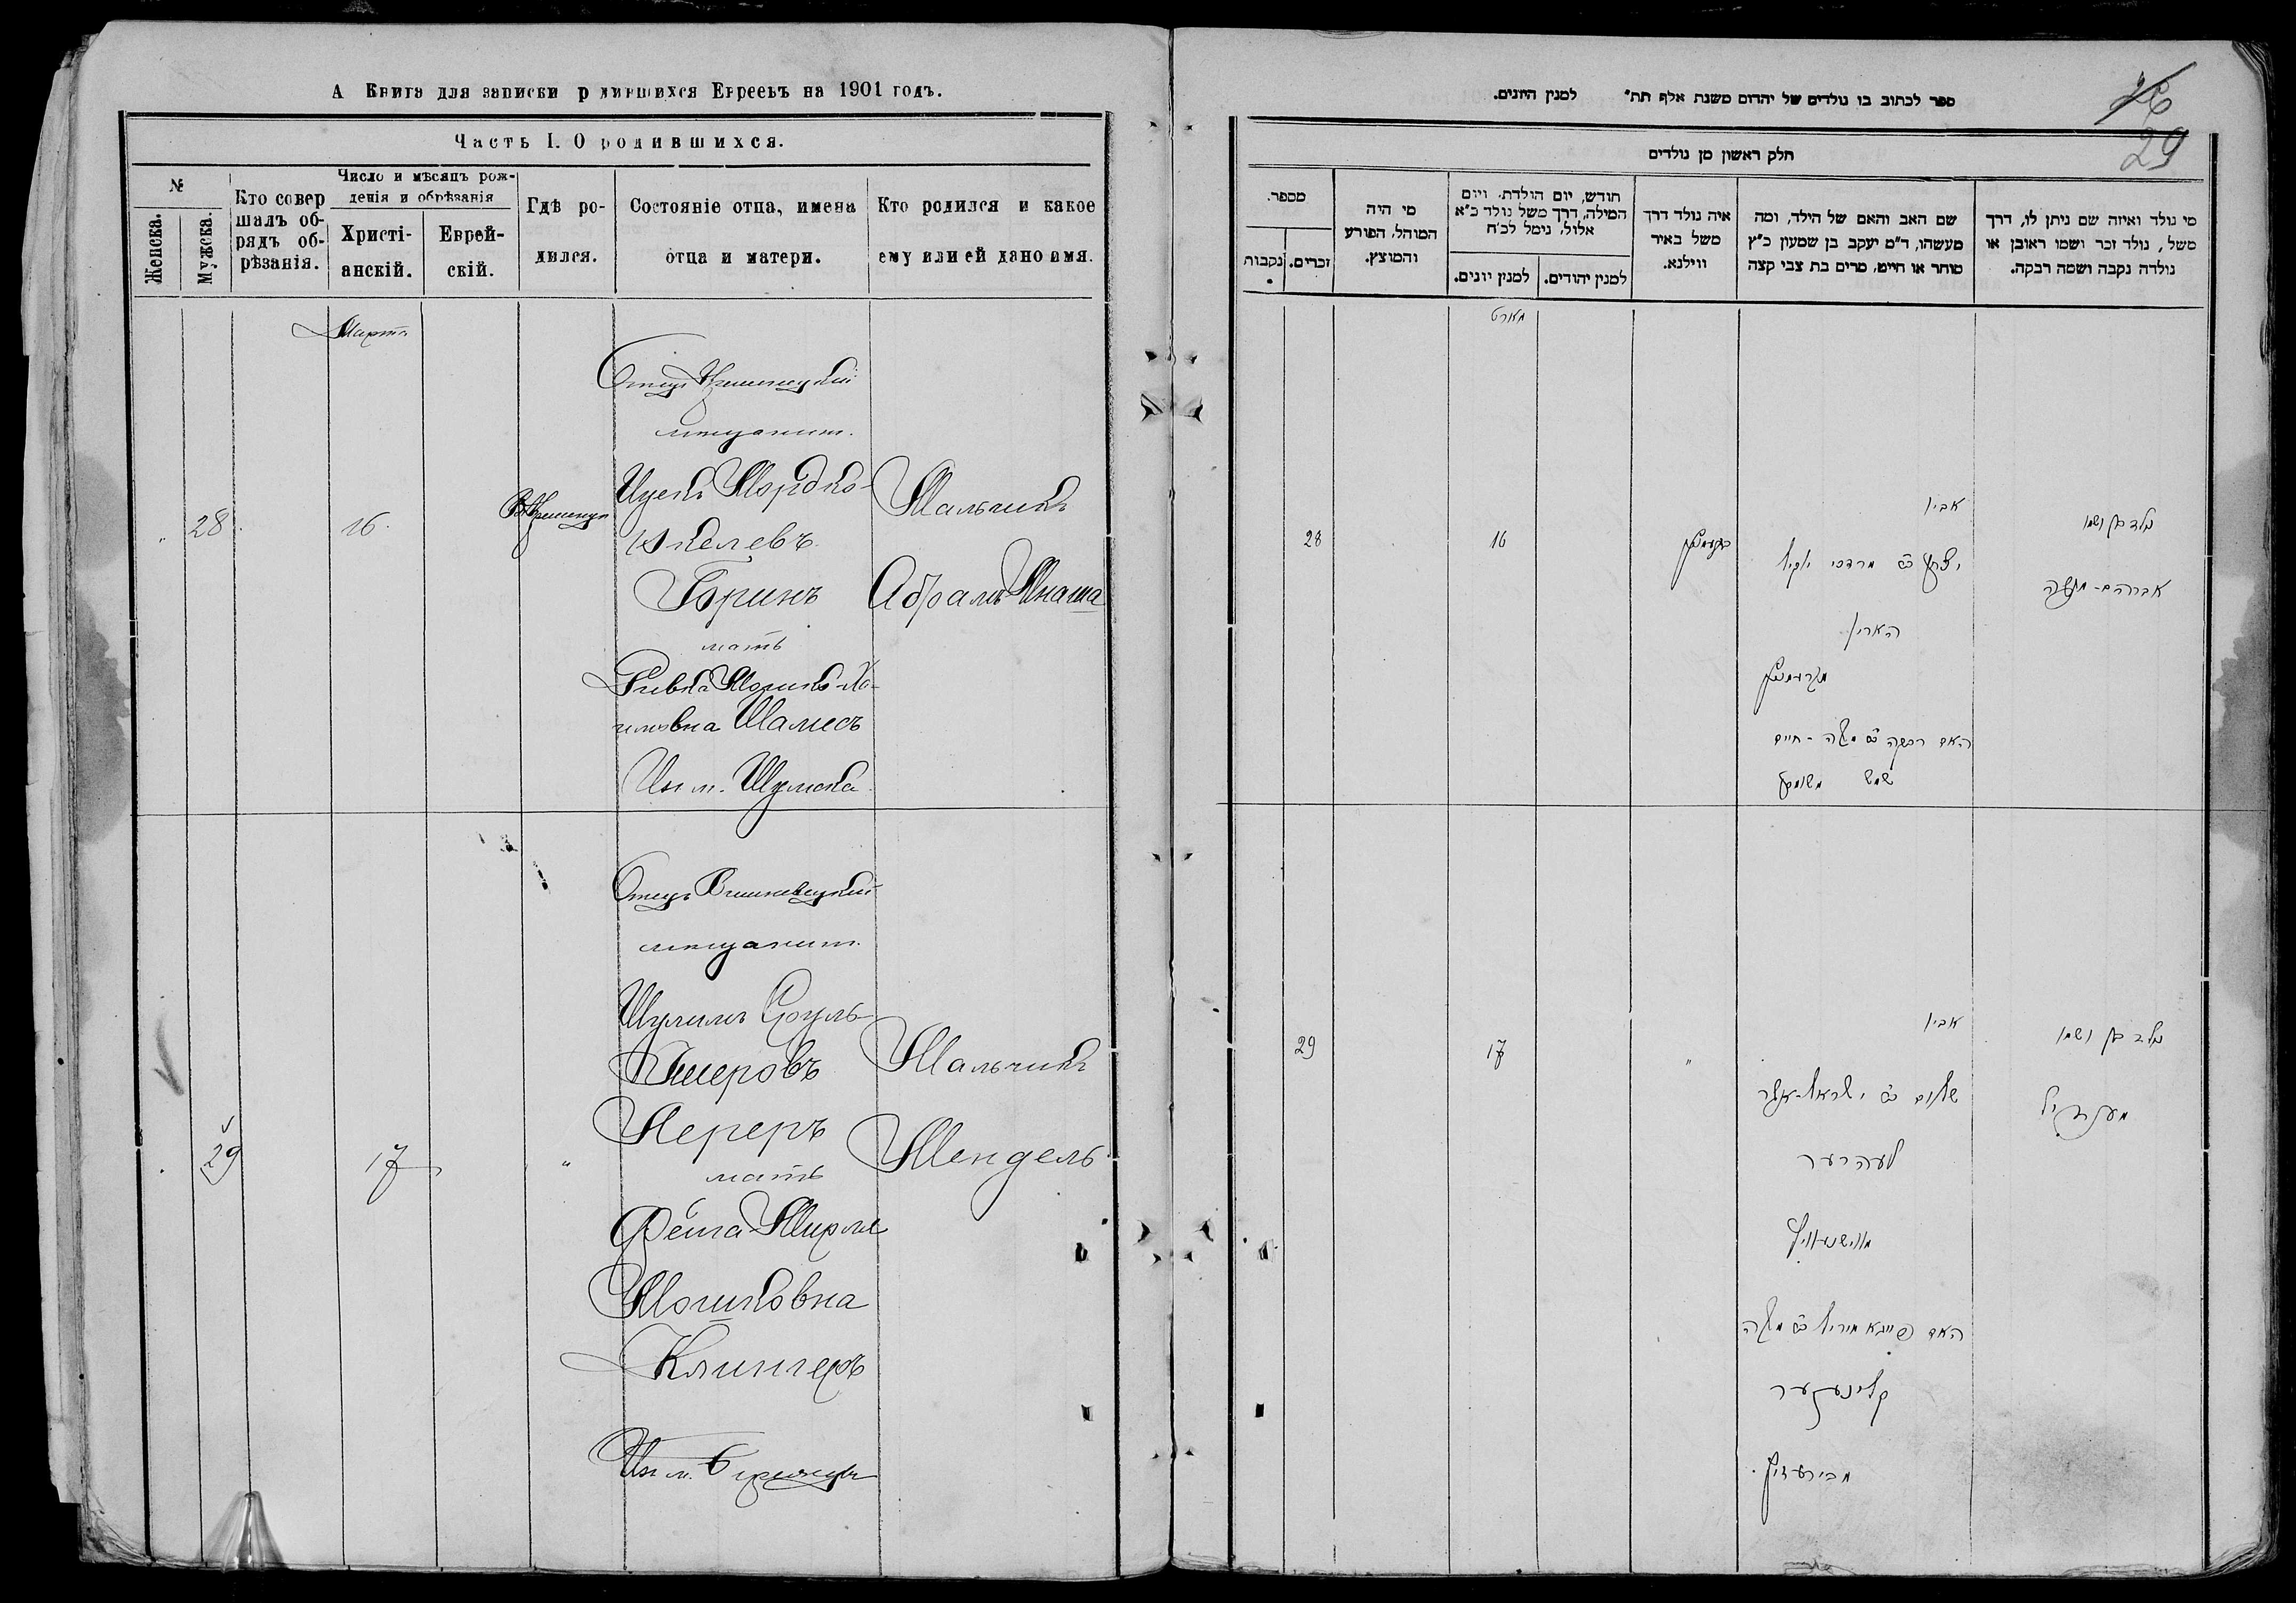 А Книга для записки р дившихся Евреевъ на 1901 годъ.
Часть I. О родившихся.
№
Женска.
Мужска.
Кто совер
шалъ об-
рядъ об-
рѣзанія.
Число и мѣсяцъ рож-
денія и обрѣзанія
Христі-
анскій.
Еврей-
скій.
Гдѣ ро-
дился.
Состояніе отца, имена
отца и матери.
Кто родился и какое
ему или ей дано имя.
Мартъ
28.
16.
Отецъ Кременецкій
мѣщанин.
Ицекъ Мордко-
Янкелевъ
Горинъ
мать
Ривка Мошко-Ха-
имовна Шамесъ
Из м. Шумска
Мальчикъ
Абрамъ Мнаша
29
17
"
Отецъ Вишневецкій
мѣщанин.
Шулимъ Сруль-
Ошеровъ
Лереръ
мать
Фейга Мирля
Мошковна
Клингеръ
Из м.
Мальчикъ
Мендель
ספר לכתוב בו נולדים של יהדום משנת אלף תת״ למנין היונים.
29
חלק ראשון מן נולדים
מספר.
נקבות
זכרים.
מי היה
המוהל, הפורע
והמוצץ.
חודש, יום הולדת, ויום
המילה, דרך משל נולד כ״א
אלול, נימל לכ״ח
למנין יונים.
למנין יהודים.
איה נולד דרך
משל באיר
ווילנא.
שם האב והאם של הילד, ומה
מעשהו, ד״מ יעקב בן שמעון כ״ץ
סוחר או חייט, מרים בת צבי קצה
מי נולד ואיזה שם ניתן לו, דרך
משל, נולד זכר ושמו ראובן או
נולדה נקבה ושמה רבקה.
מארט
28
16
אביו
יצחק ב״ר מרדכי יעקב
הארין
מקרעמעניץ
האם רבקה ב״ר משה - חיים
שמש משומסק
נולד בן ושמו
אברהם - מנשה
29
17
"
אביו
שלום ב״ר ישראל-אשר
לעהרער
מווישניוויץ
האם פייגא מירל ב״ר משה
קלינגער
נולד בן ושמו
מענדיל